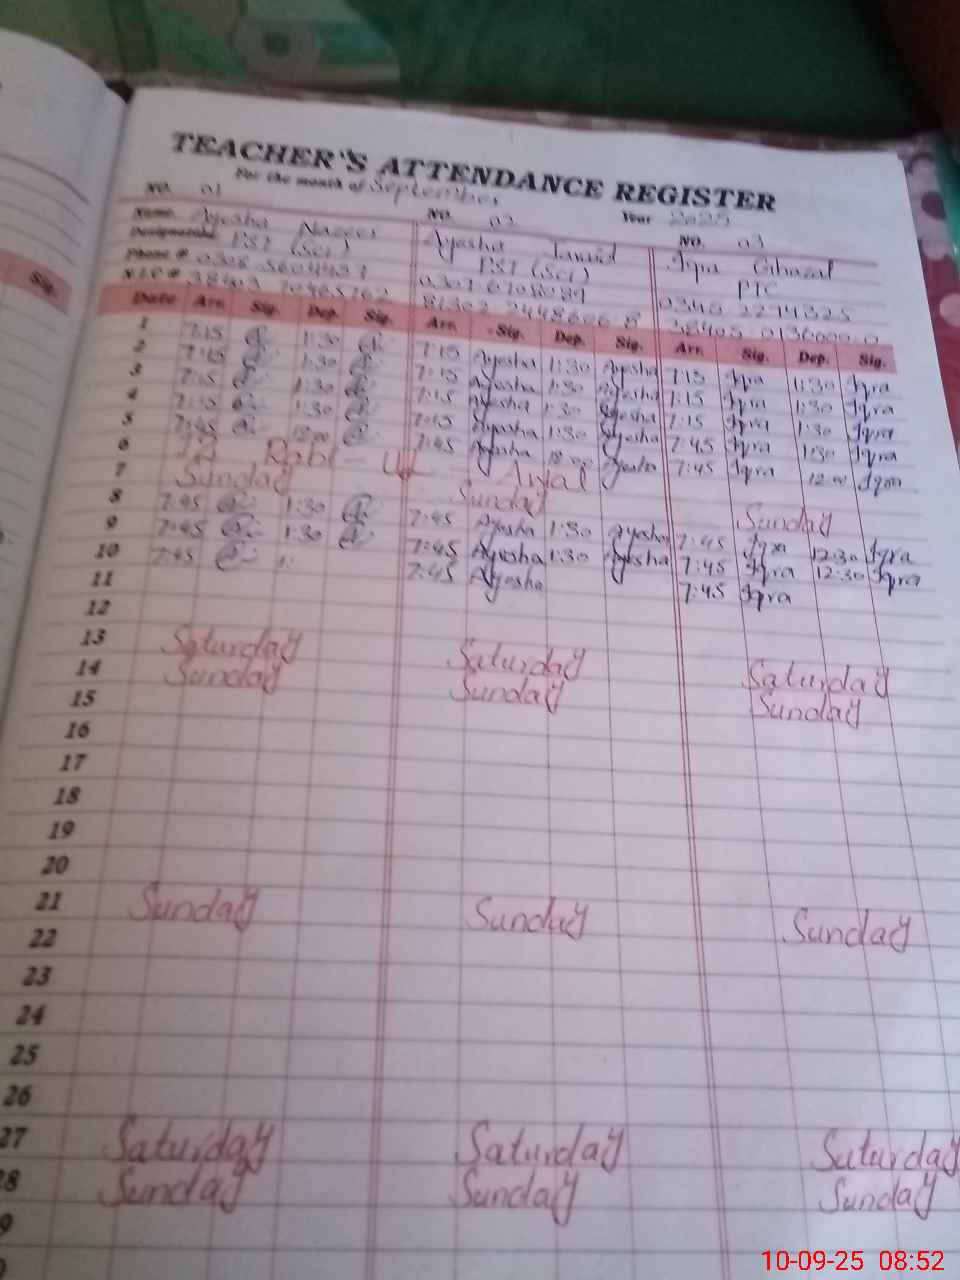 TEACHER'S ATTENDANCE REGISTER
For the month of September Year 2025
NO. 01 NO. 02 NO. 03
Name. Ayesha Ayesha Iqra
Designation PST (Sci) PST (Sci) PTC
Phone #
N.I.C #
Date Arr. Sig. Dep. Sig. Arr. Sig. Dep. Sig. Arr. Sig. Dep. Sig.
1 7:15 1:30 7:15 Ayesha 1:30 Ayesha 7:15 Iqra 1:30 Iqra
2 7:15 1:30 7:15 Ayesha 1:30 Ayesha 7:15 Iqra 1:30 Iqra
3 7:15 1:30 7:15 Ayesha 1:30 Ayesha 7:15 Iqra 1:30 Iqra
4 7:15 1:30 7:15 Ayesha 1:30 Ayesha 7:45 Iqra 1:30 Iqra
5 7:45 12:00 7:45 Ayesha 12:00 Ayesha 7:45 Iqra 12:00 Iqra
6 12 Rabi - ul - Awal
7 Sunday Sunday Sunday
8 7:45 1:30 7:45 Ayesha 1:30 Ayesha 7:45 Iqra 12:30 Iqra
9 7:45 1:30 7:45 Ayesha 1:30 Ayesha 7:45 Iqra 12:30 Iqra
10 7:45 7:45 Ayesha 7:45 Iqra
11
12
13 Saturday Saturday Saturday
14 Sunday Sunday Sunday
15
16
17
18
19
20
21 Sunday Sunday Sunday
22
23
24
25
26
27 Saturday Saturday Saturday
28 Sunday Sunday Sunday
9
10-09-25 08:52